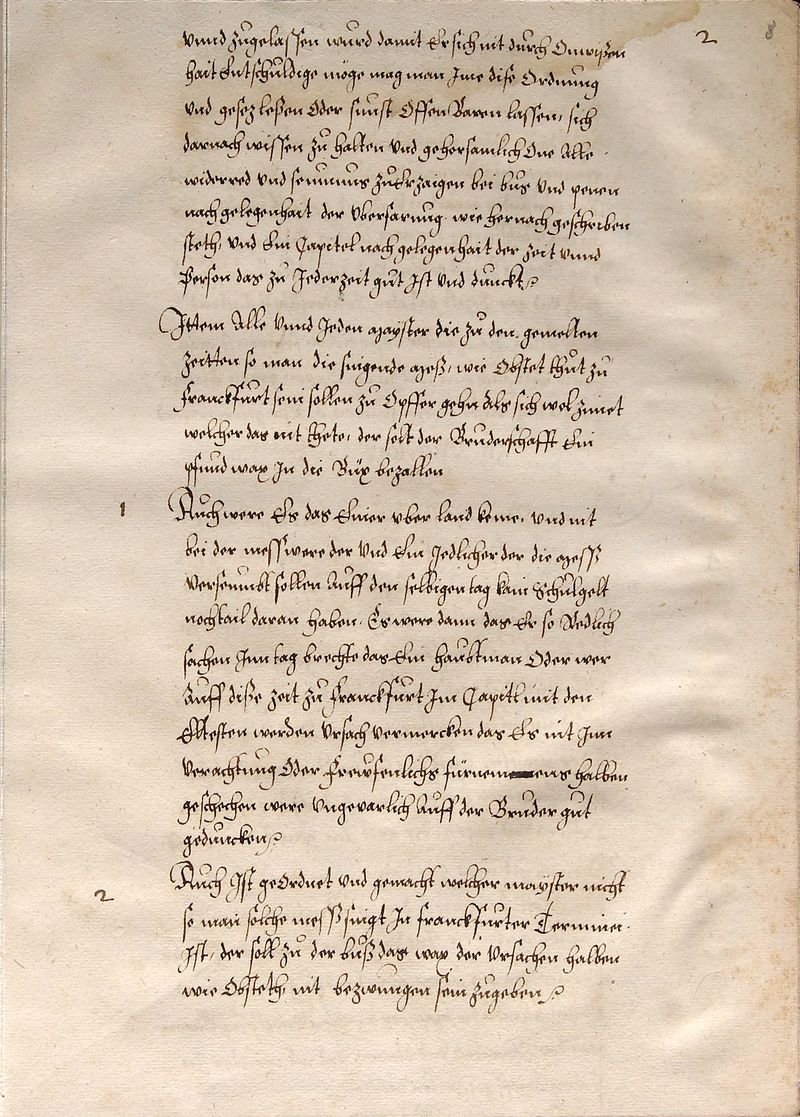 2 8
vnnd zugelassen wurd damit Er sich nit durch Onwissen
hait Entschuldige möge mag man Ime dise Ordnung
vnd gesez leßen Oder sunst Offen Baren lassen, sich
darnach wissen zu halten vnd gehorsamlich One Alle
widerred vnd seumnus zu Erzaigen bei bus vnd penen
nach gelegenhait der vberfarung wie hernach geschriben
steth, vnd Ein Capitel nach gelegenhait der zeit vnnd
Person das zu Jederzeit gut Ist vnd dunckt
Ittem Alle vnnd Jeden mayster die zu den gemelten
zeitten so man die singende mess, wie Obstet thut zu
Franckfurt sein sollen zu Opffer gehn Als sich wol zimet
welcher das nit thete, der solt der Bruderschafft Ein
pfund wax In die Büx bezallen
1 Auch were Es das Einer vber land keme, vnd nit
bei der mess were der vnd Ein Jedlicher der die mess
versaumbt sollen Auff den selbigen tag kain Schulgelt
noch tail daran haben, Es were dann das Er so Redlich
sachen Inn tag brechte das Ein haubtman Oder wer
Auff diße zeit zu Franckfurt Im Capitl mit den
Eltesten werden vrsach vermercken das Es nit Inn
verachtung Oder Frewfenlichs fürnemens halben
geschechen were vngevarlich Auff der Bruder gut
geduncken
2 Auch Ist geOrdnet vnd gemacht welcher mayster nicht
so man solche mess singt In franckfurter Terminei
Ist, der soll zu der buß das wax der Vrsachen halben
wie Obsteth, nit bezwungen sein zugeben